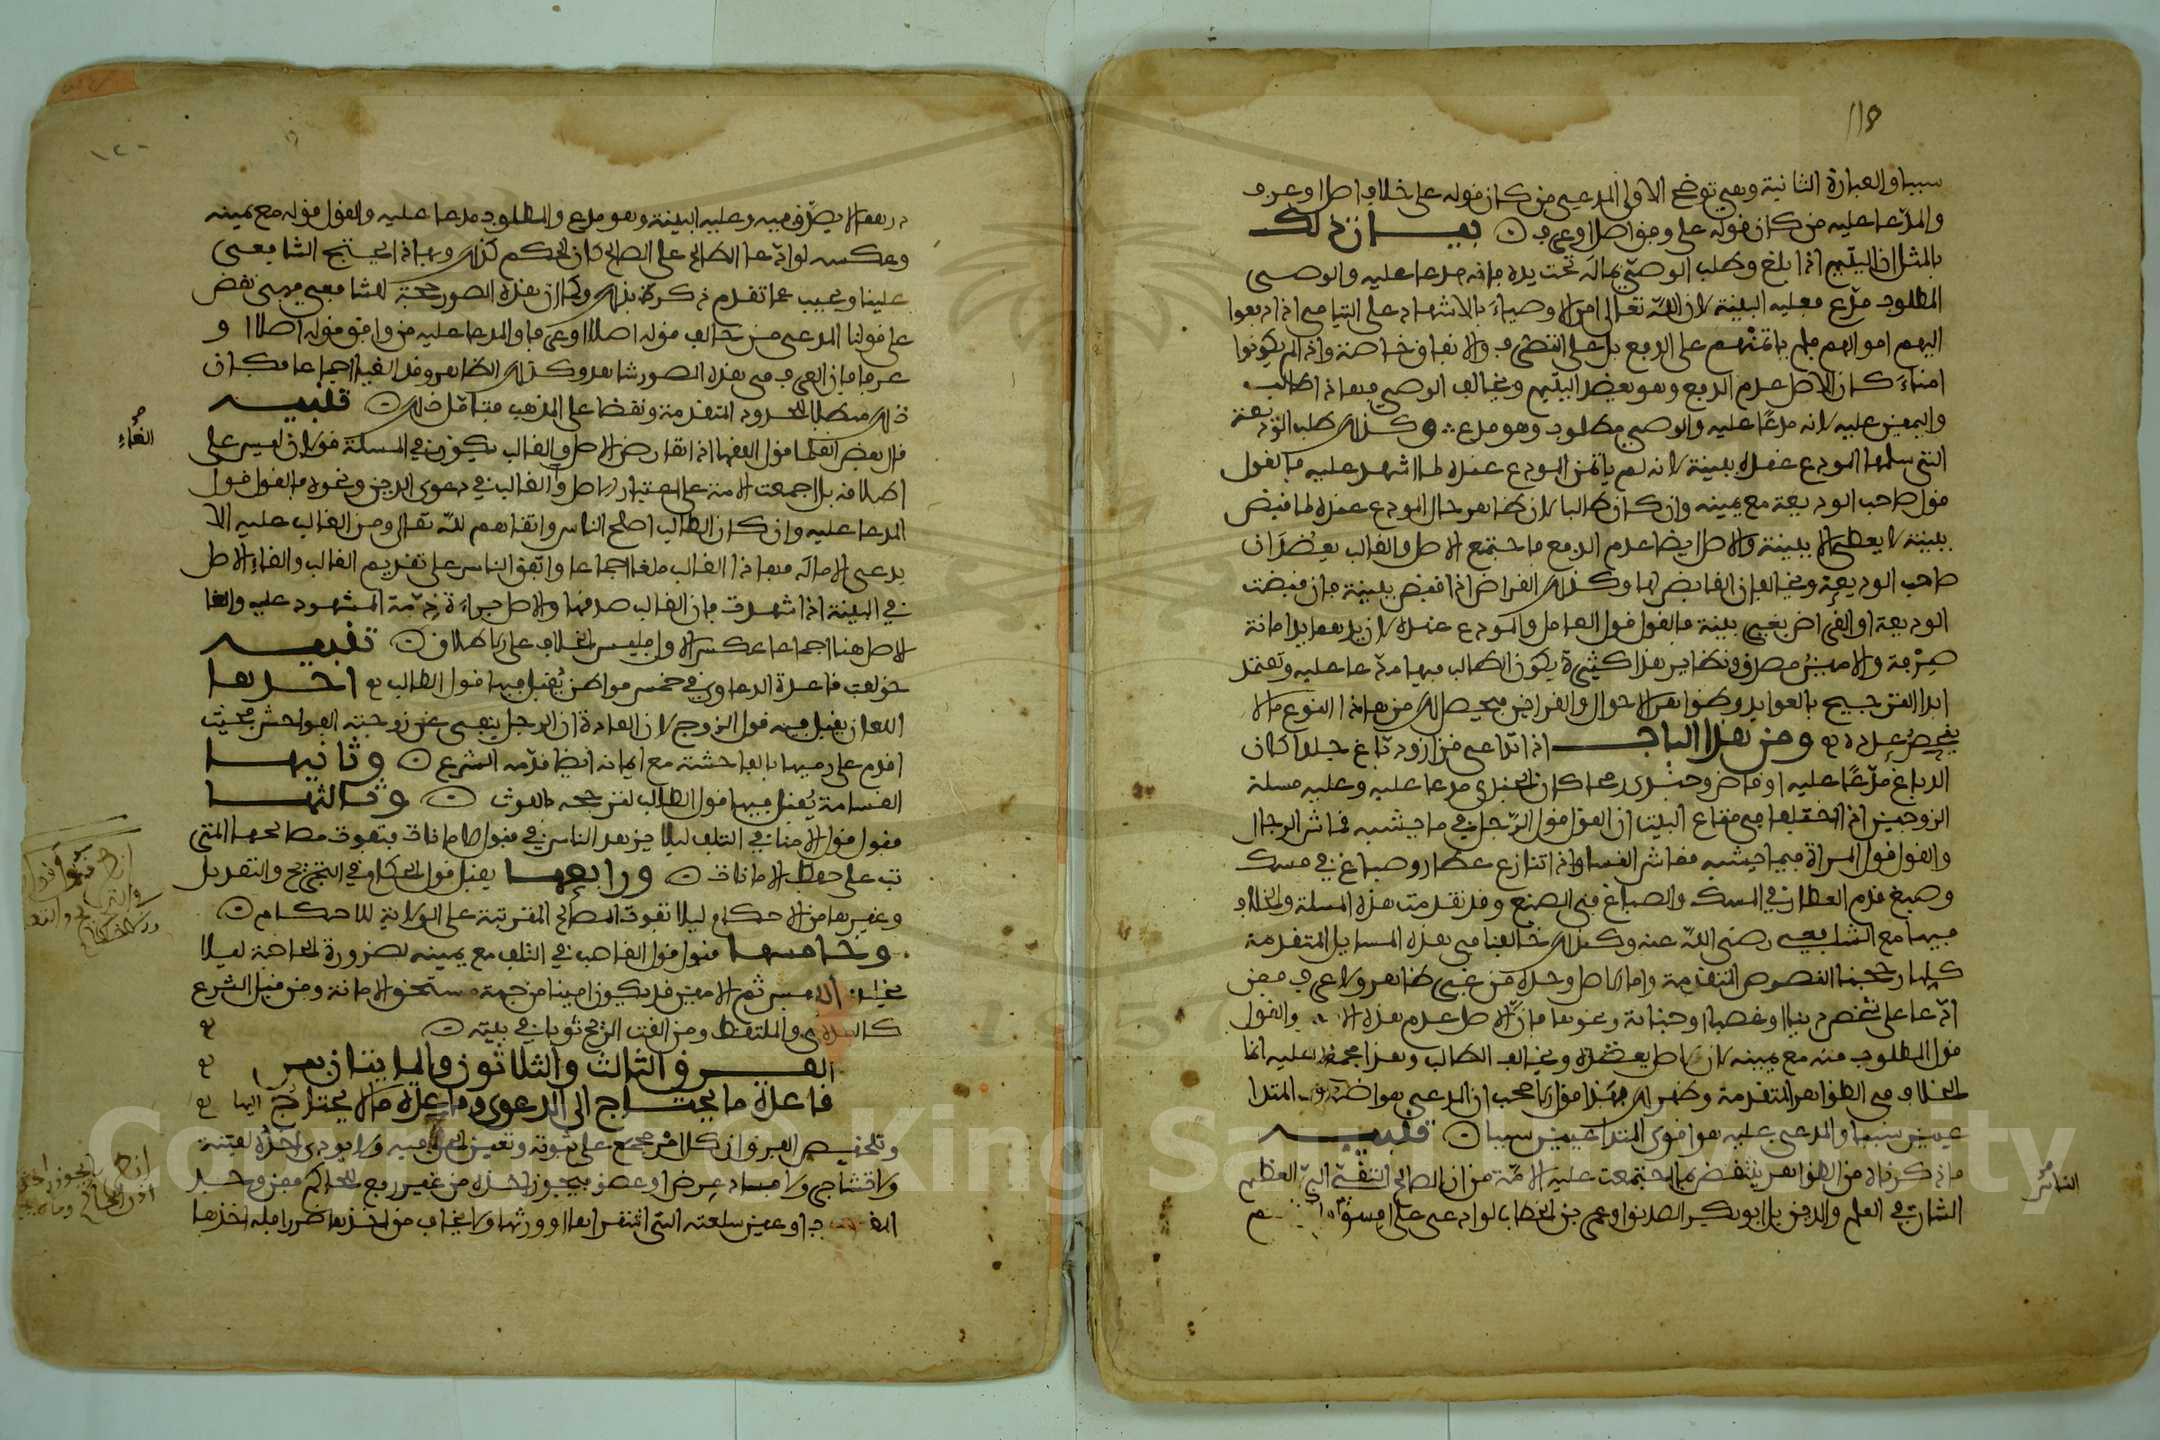 سببا والعبارة الثانية وهي توضح الاولى المدعي من كان قوله على خلاف اصل او عرف
والمدّعا عليه من كان قوله على وفق اصل او عرف بيان ذلك
بالمثل ان اليتيم اذا بلغ وطلب الوصيّ بماله تحت يده فانه مدعا عليه والوصي
المطلوب مدّع فعليه البينة لان الله تعالى امر الاوصياء بالاشهاد على اليتامى اذا دفعوا
اليهم اموالهم فلم ياتمنهم على الدفع بل على التصرف والانفاق خاصة واذا لم يكونوا
امناء كان الاصل عدم الدفع وهو يعضد اليتيم ويخالف الوصي فهاذا طالب
واليمين عليه لانه مدعًا عليه والوصي مطلوب وهو مدع وكذلك طلب الوديعة
التي سلمها المودع عنده ببينة لانه لم ياتمن المودع عنده لما اشهد عليه فالقول
قول صاحب الوديعة مع يمينه وان كان طالبا لان ظاهر حال المودع عنده لما قبض
ببينة لا يعطي الا ببينة والاصل ايضا عدم الدفع فاجتمع الاصل والغالب يعضدان
صاحب الوديعة ويخالفان القابض لها وكذلك القراض اذا قبض ببينة فان قبضت
الوديعة او القراض بغير بينة فالقول قول العامل والمودع عنده لان يدهما يد امانة
صِرْفة والامين مصدق ونظاير هذا كثيرة يكون الطالب فيها مدّعا عليه وتعتمد
ابدا الترجيح بالعوايد وظواهر الاحوال والقراين فيحصل لك من هاذا النوع ما لا
ينحصر عدده ومن هذا الباب اذا تداعى بزاز ودباغ جلدا كان
الدباغ مدّعًا عليه او قاض وجندي رمحا كان الجندي مدعا عليه وعليه مسلة
الزوجين اذا اختلفا في متاع البيت ان القول قول الرّجل في ما يشبه قماش الرجال
والقول قول المراة فيما يشبه قماش النسا واذا تنازع عطار وصباغ في مسك
وصبغ قدم العطار في المسك والصباغ في الصبغ وقد تقدمت هذه المسلة والخلاف
فيها مع الشافعي رضي الله عنه وكذلك خالفنا في هذه المسايل المتقدمة
كلها وحجتنا النصوص المتقدمة واما الاصل وحده من غير ظاهر ولا عرف فمن
ادّعا على شخص دينا او غصبا او جناية ونحوها فان الاصل عدم هذه الا والقول
قول المطلوب منه مع يمينه لان الاصل يعضده ويخالف الطالب وهذا مجمع عليه انما
الخلاف في الظواهر المتقدمة وظهر لك بهذا قول الاصحاب ان المدعي هو اضعف المتدا
عيين سببا والمدعى عليه هو اقوى المتداعيين سببا تنبيه
ما ذكرناه من الظواهر ينتقض بما اجتمعت عليه الامّة من ان الصالح التقيّ الكبير العظيم
الشان في العلم والدين بل ابو بكر الصديق او عمر بن الخطاب لو ادعى على افسق
درهما لا يصدّق فيه وعليه البينة وهو مدع والمطلوب مدعا عليه والقول قوله مع يمينه
وعكسه لو ادّعا الطالح على الصالح كان الحكم كذلك وبهاذا يحتج الشافعي
علينا ويجيب عما تقدم ذكره بذلك وكما ان هذه الصور حجة للشافعي فهي نقض
على قولنا المدعي من خالف قوله اصلا او عرفا والمدعا عليه من وافق قوله اصلا او
عرفا فان العرف في هذه الصور شاهد وكذلك الظاهر وقد الغيا اجماعا فكان
ذلك مبطلا للحدود المتقدمة ونقضا على المذهب فتامّل ذلك تنبيه
قال بعض العلما قول الفقها اذا تعارض الاصل والغالب يكون في المسلة قولان ليس على
اطلاقه بل اجمعت الامة على اعتبار الاصل والغاء الغالب في دعوى الدين ونحوه فالقول قول
المدعا عليه وان كان الطالب اصلح الناس واتقاهم لله تعالى ومن الغالب عليه الا
يدعي الا ماله فهاذا الغالب ملغا اجماعا واتفق الناس على تقديم الغالب والغاء الاصل
في البينة اذا شهدت فان الغالب صدقها والاصل براءة ذمّة المشهود عليه والغا
الاصل هنا اجماعا عكس الاول فليس الخلاف على الاطلاق تنبيه
خولفت قاعدة الدعاوى في خمس مواطن يُقبل فيها قول الطالب احدها
اللعان يقبل فيه قول الزوج لان العادة ان الرجل ينفي عن زوجته الفواحش فحيث
اقدم على رميها بالفاحشة مع ايمانه ايضا قدّمه الشرع وثانيها
القسامة يُقبل فيها قول الطالب لترجحه باللوث وثالثها
قبول قول الامنا في التلف ليلا يزهد الناس في قبول الامانات فتفوت مصالحها المتر
تبة على حفظ الامانات ورابعها يقبل قول الحكام في التجريح والتعديل
وغيرها من الاحكام ليلا تفوت المصالح المترتبة على الولاية للاحكام
وخامسها قبول قول الغاصب في التلف مع يمينه لضرورة الحاجة ليلا
يخلد ثم الامين قد يكون امينا من جهة مستحق الامانة ومن قبل الشرع
كالوصي والملتقط ومن القت الريح ثوبا في بيته
الفرق الثالث والثلاثون والمايتان بين
قاعدة ما يحتاج الى الدعوى وقاعدة ما لا يحتاج اليها
وتلخيص الفرق ان كل امر مجمع على ثبوته وتعين الحق فيه ولا يودي اخذه لفتنة
ولا تشاجر ولا فساد عرض او عضو فيجوز اخذه من غير رفع للحاكم فمن وجد
المغصوب او عين سلعته التي اشتراها او ورثها ولا يخاف من اخذها ضررا فله اخذها